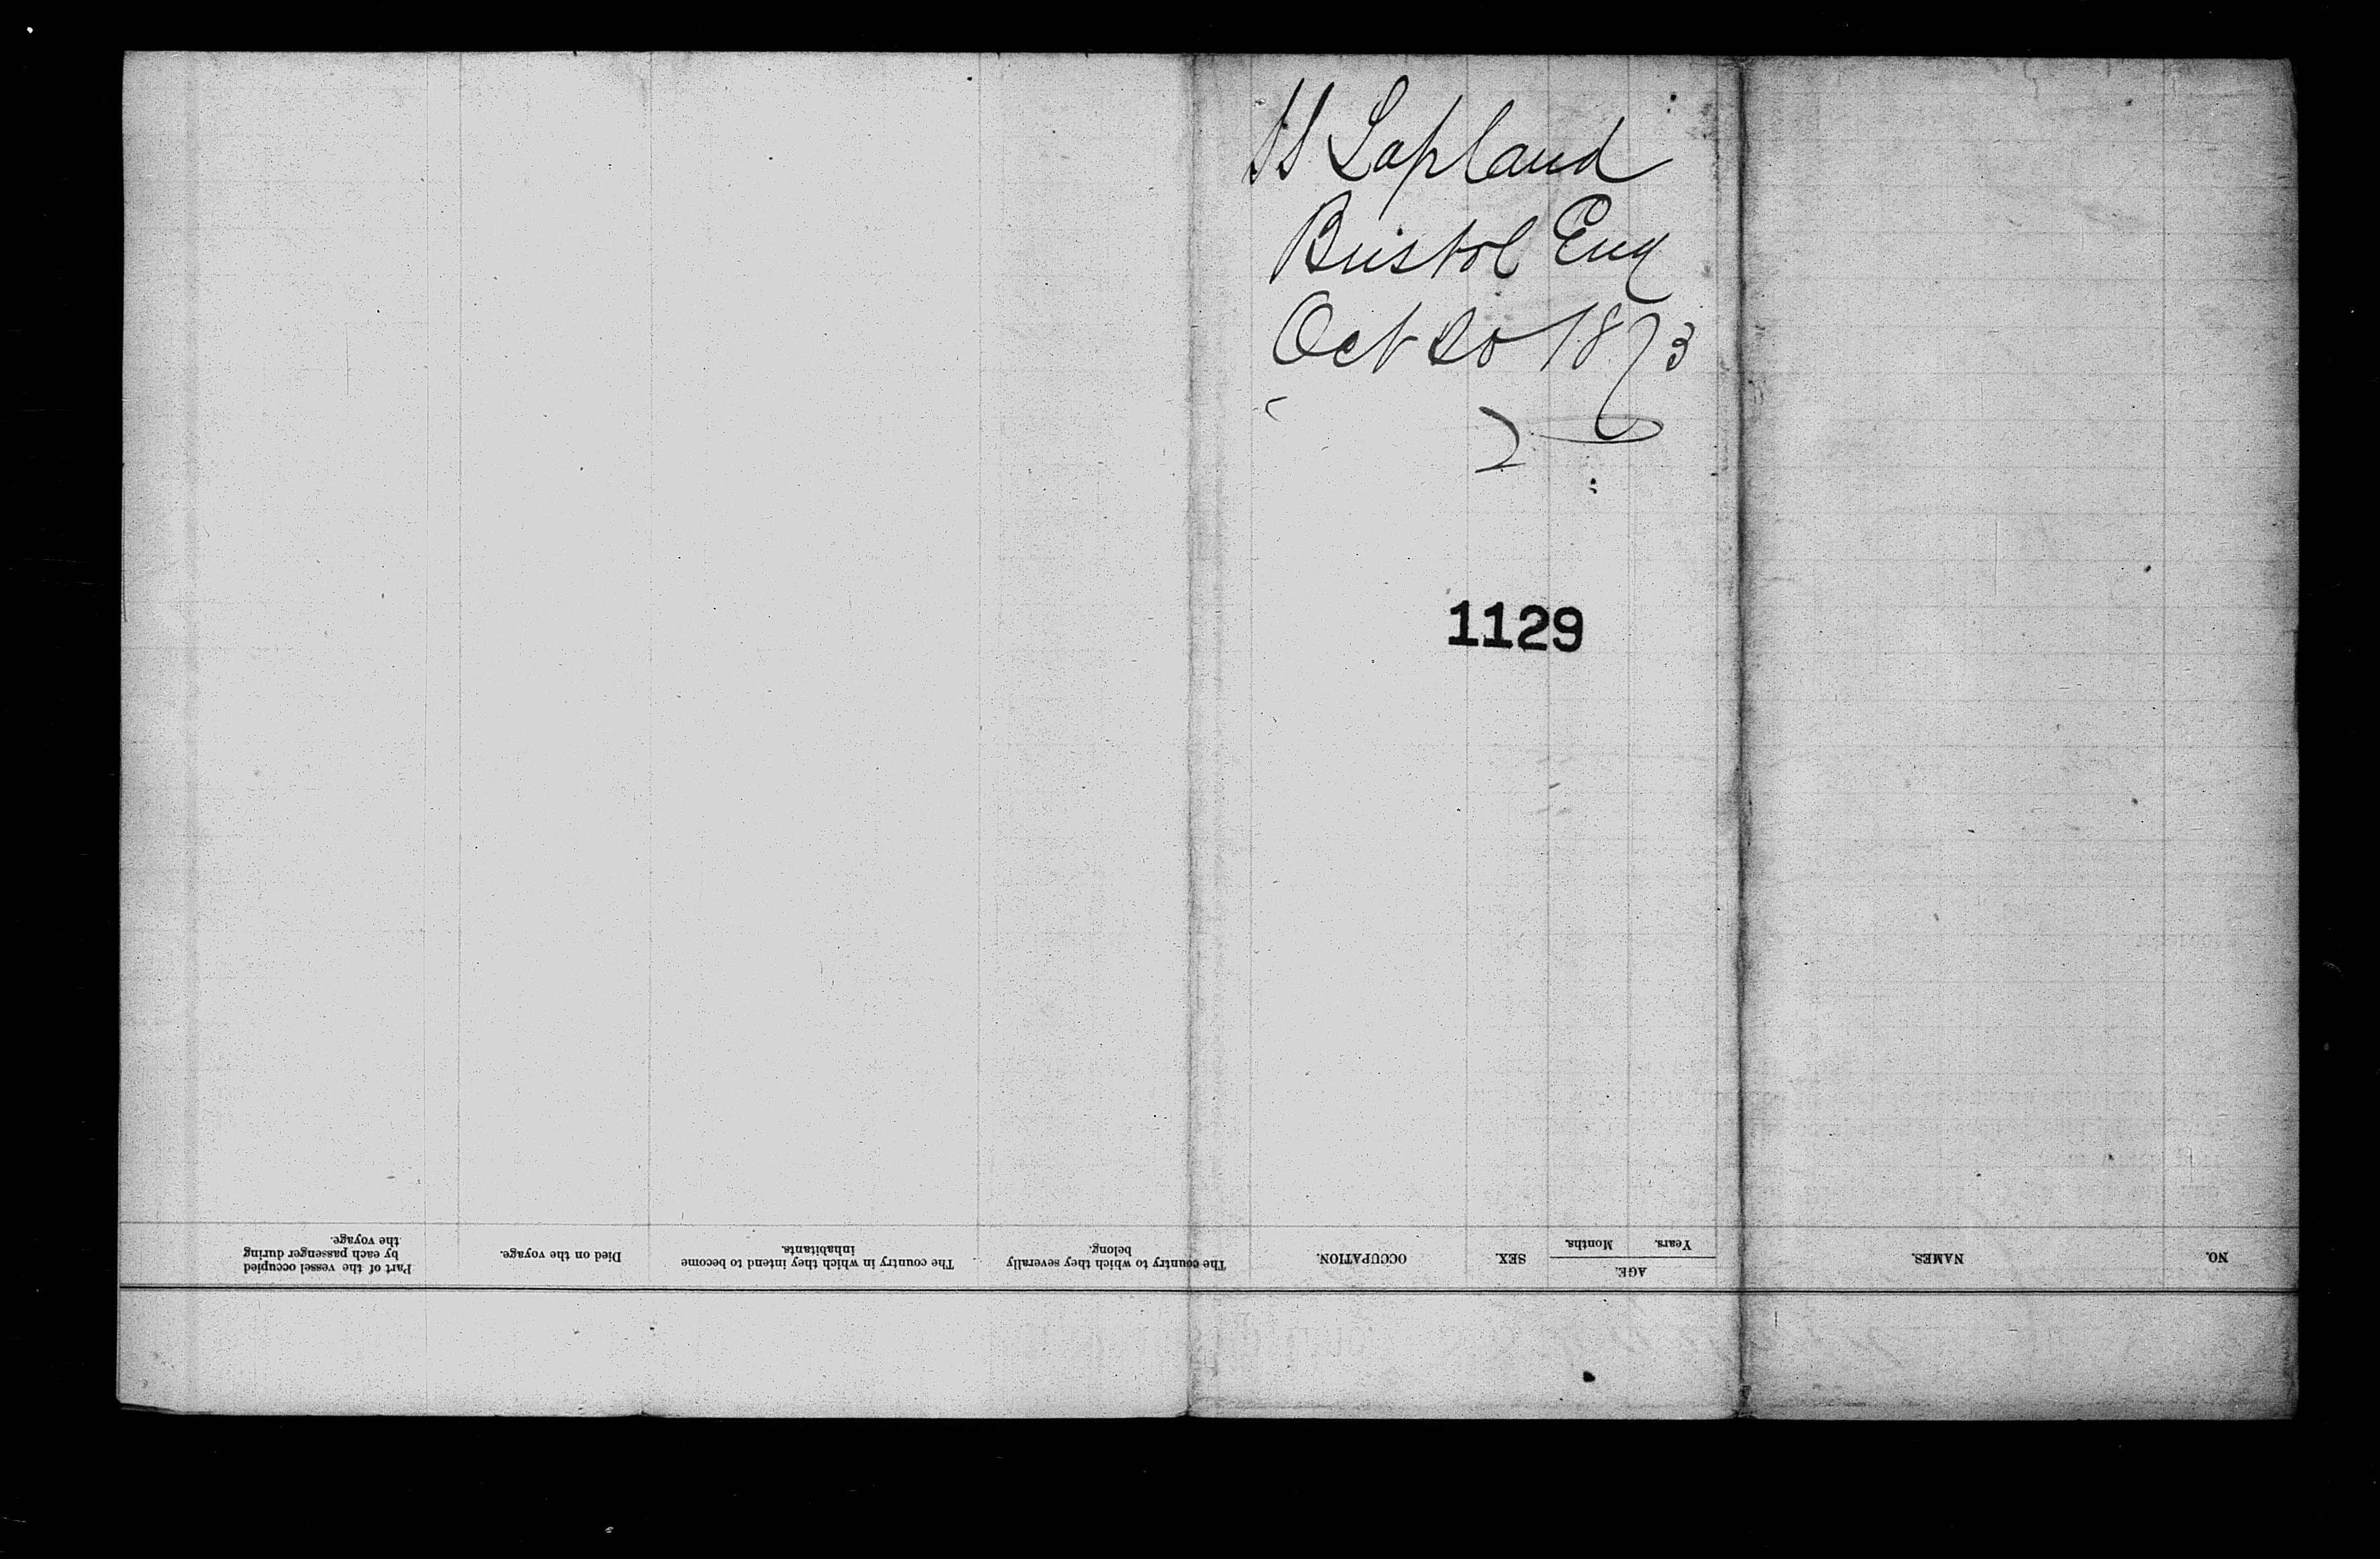 SS Lapland
Bristol Eng
Oct 20 1873
2
1129
NO.
NAMES.
AGE.
Years.
Months.
SEX.
OCCUPATION.
The country to which they severally
belong.
The country in which they intend to become
inhabitants.
Died on the voyage.
Part of the vessel occupied
by each passenger during
the voyage.